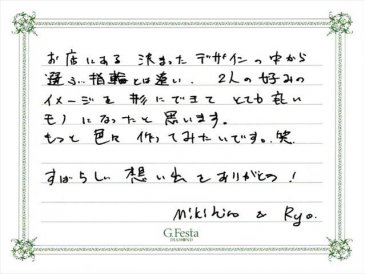 お店にある 決まったデザインの中から
選ぶ指輪とは違い、2人の好みの
イメージを形にできて とても良い
モノになったと思います。
もっと色々作ってみたいです。笑
すばらしい想い出をありがとう!
Mikihiro & Ryo.
G.Festa
DIAMOND